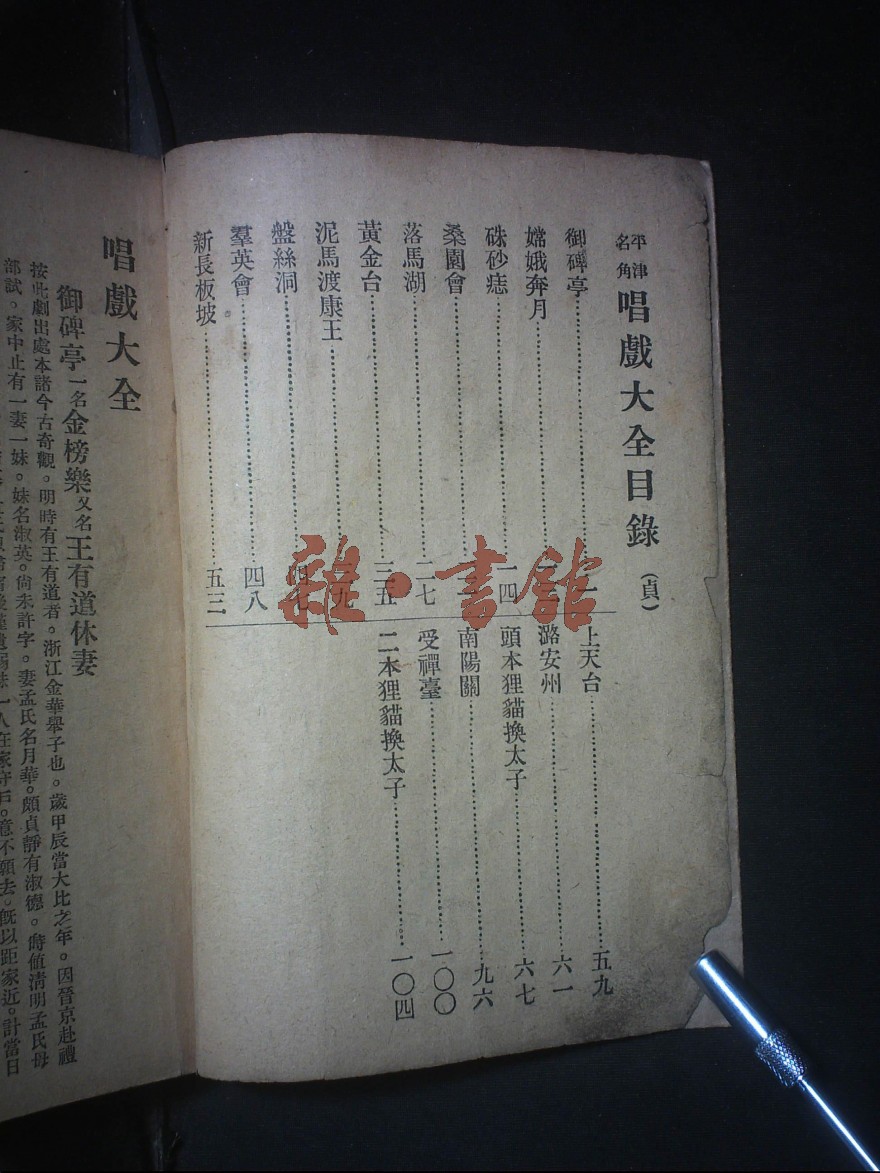 平津名角 唱戲大全目錄（貞）
御碑亭……一
嫦娥奔月……
硃砂痣……一四
桑園會……
落馬湖……二七
黃金台……三五
泥馬渡康王……九
盤絲洞……
羣英會……四八
新長板坡……五三
上天台……五九
潞安州……六一
頭本狸貓換太子……六七
南陽關……九六
受禪臺……一〇〇
二本狸貓換太子……一〇四
唱戲大全
御碑亭 一名金榜樂又名王有道休妻
按此劇出處本諸今古奇觀。明時有王有道者。浙江金華舉子也。歲甲辰當大比之年。因晉京赴禮
部試。家中止有一妻一妹。妹名淑英。尚未許字。妻孟氏名月華。頗貞靜有淑德。時值清明孟氏母
一人在家守戶。意不願去。旣以距家近。計當日
雜·書館